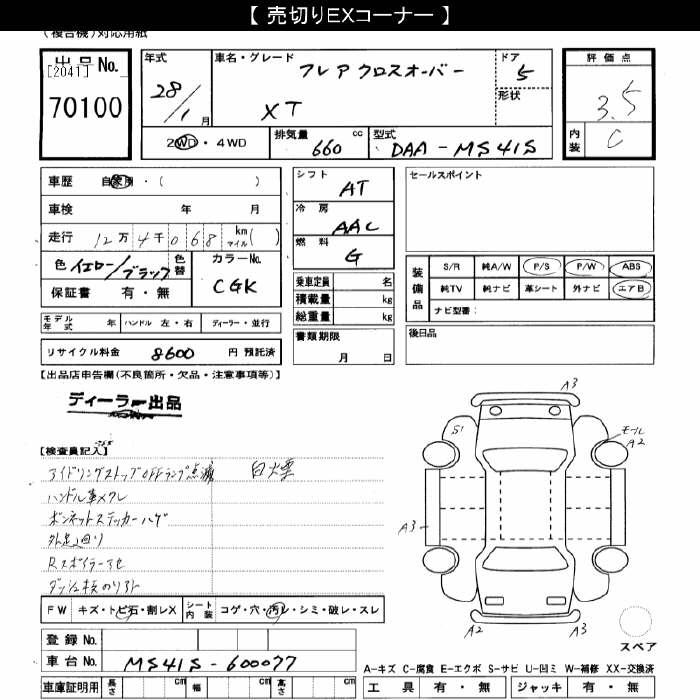 【 売切りEXコーナー 】
(複合機)対応用紙
出品 No.
[2041]
70100
年式
28/1月
車名・グレード
フレア クロスオーバー
XT
ドア
5
形状
評価点
3.5
内装
C
2WD・4WD
排気量 660 cc
型式 DAA-MS41S
車歴 自家用・( )
車検 年 月
走行 12万4千068 km マイル( )
色 イエロー/ブラック 色替
カラーNo.
CGK
保証書 有・無
モデル年式 年 ハンドル 左・右 ディーラー・並行
リサイクル料金 8600 円 預託済
シフト AT
冷房 AAC
燃料 G
乗車定員 名
積載量 kg
総重量 kg
書類期限
月 日
セールスポイント
装備品
S/R 純A/W P/S P/W ABS
純TV 純ナビ 革シート 外ナビ エアB
ナビ型番:
後日品
【出品店申告欄(不良箇所・欠品・注意事項等)】
ディーラー出品
【検査員記入】
アイドリングストップOFFランプ点滅 白大雲
ハンドル革メクレ
ボンネットステッカーハゲ
外廻り
Rスポイラー
FW キズ・トビ石・割レX シート内装 コゲ・穴・汚レ・シミ・破レ・スレ
登録 No.
車台 No. MS41S-600077
車庫証明用 長さ cm 幅 cm 高さ cm
A3
S1
モール
A2
A3
A2
A3
スペア
A-キズ C-腐食 E-エクボ S-サビ U-凹ミ W-補修 XX-交換済
工具 有・無 ジャッキ 有・無